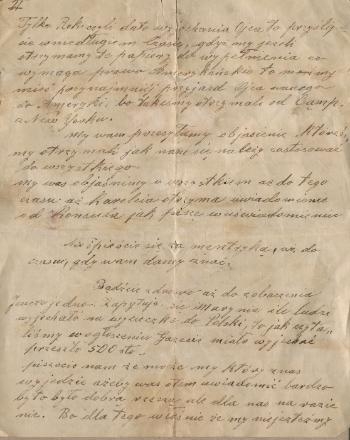 Tylko Rok czyli data wyjechania Ojca to przyślij-
cie w niedługiem czasie, gdyż my jeżli
otrzymamy te papiery do wypełnienia co
wymaga prawo Amerykańskie to możemy
mieć przynajmniej przyjazd Ojca naszego
do Ameryki, bo takiemy otrzymali od Camp.
z New Yorku.
My wam poszyłamy objaśnienie które
my otrzymali jak nam się należy zastosować
do wszystkiego
my was objaśnimy o wszystkiem aż do tego
czasu aż Karolcia otrzyma uwiadomienie
od konsula jak pisze w uświadomieniu
Nie śpieszcie się za mentryką, aż do
czasu, gdy wam damy znać.
Bądźcie zdrowe aż do zobaczenia
Jeszcze jedno. Zapytuje się Marynia ile ludzi
wyjechało na wycieczki do Polski, to jak czyta-
liśmy w ogłoszeniu Gazecie miało wyjechać
przeszło 500 sto.
piszecie nam że może my który z nas
wyjedzie ażeby was o tem uwiadomić bardzo
było by to dobra rzecz ale dla nas na razie
nie. Bo dla tego właśnie że my niejesteśmy